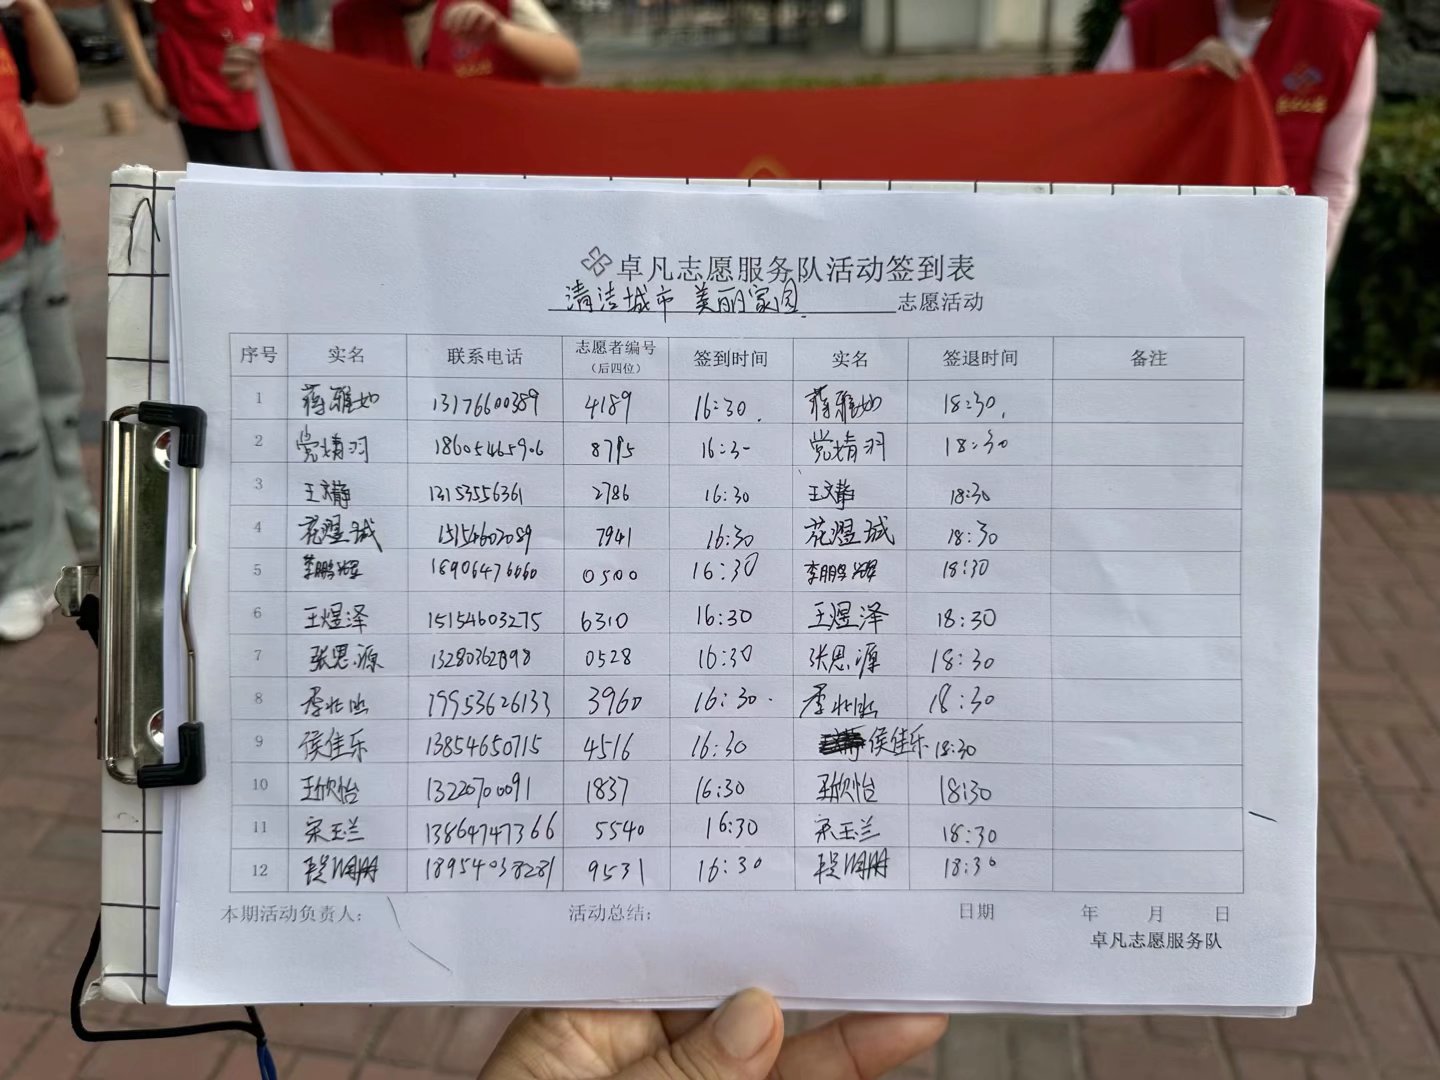 卓凡志愿服务队活动签到表
清洁城市 美丽家园 志愿活动
序号 实名 联系电话 志愿者编号（后四位） 签到时间 实名 签退时间 备注
1 蒋雅如 13176600389 4189 16:30. 蒋雅如 18:30.
2 党婧羽 18605465906 8795 16:30 党婧羽 18:30
3 王文静 13153556361 2786 16:30 王文静 18:30
4 花煜诚 15154602089 7941 16:30 花煜诚 18:30
5 李鹏辉 18906476060 0500 16:30 李鹏辉 18:30
6 王煜泽 15154603275 6310 16:30 王煜泽 18:30
7 张思源 13280362898 0528 16:30 张思源 18:30
8 19953626133 3960 16:30. 18:30
9 侯佳乐 13854650715 4516 16:30 侯佳乐 18:30
10 王欣怡 13220700091 1837 16:30 王欣怡 18:30
11 宋玉兰 13864747366 5540 16:30 宋玉兰 18:30
12 18954038281 9531 16:30 18:30
本期活动负责人： 活动总结： 日期 年 月 日
卓凡志愿服务队